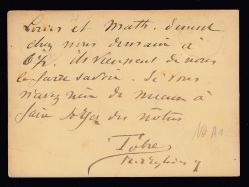 Louis et Math. dinent
chez nous demain à
6½. ils viennent de nous
le faire savoir. Si vous
n'avez rien de mieux à
faire soyez des nôtres